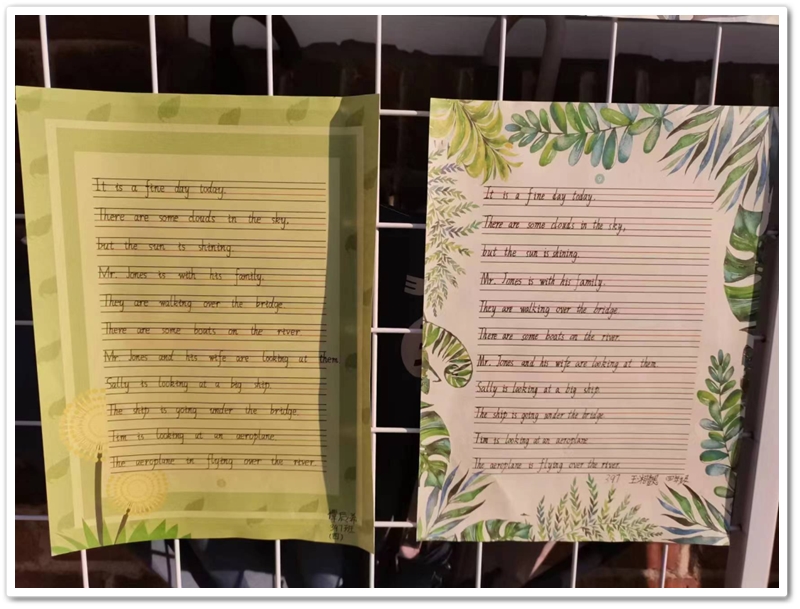 It is a fine day today.
There are some clouds in the sky,
but the sun is shining.
Mr. Jones is with his family.
They are walking over the bridge.
There are some boats on the river.
Mr Jones and his wife are looking at them.
Sally is looking at a big ship.
The ship is going under the bridge.
Tim is looking at an aeroplane.
The aeroplane in flying over the river.
It is a fine day today.
There are some clouds in the sky,
but the sun is shining.
Mr. Jones is with his family.
They are walking over the bridge.
There are some boats on the river.
Mr. Jones and his wife are looking at them.
Sally is looking at a big ship.
The ship is going under the bridge.
Tim is looking at an aeroplane.
The aeroplane is flying over the river.